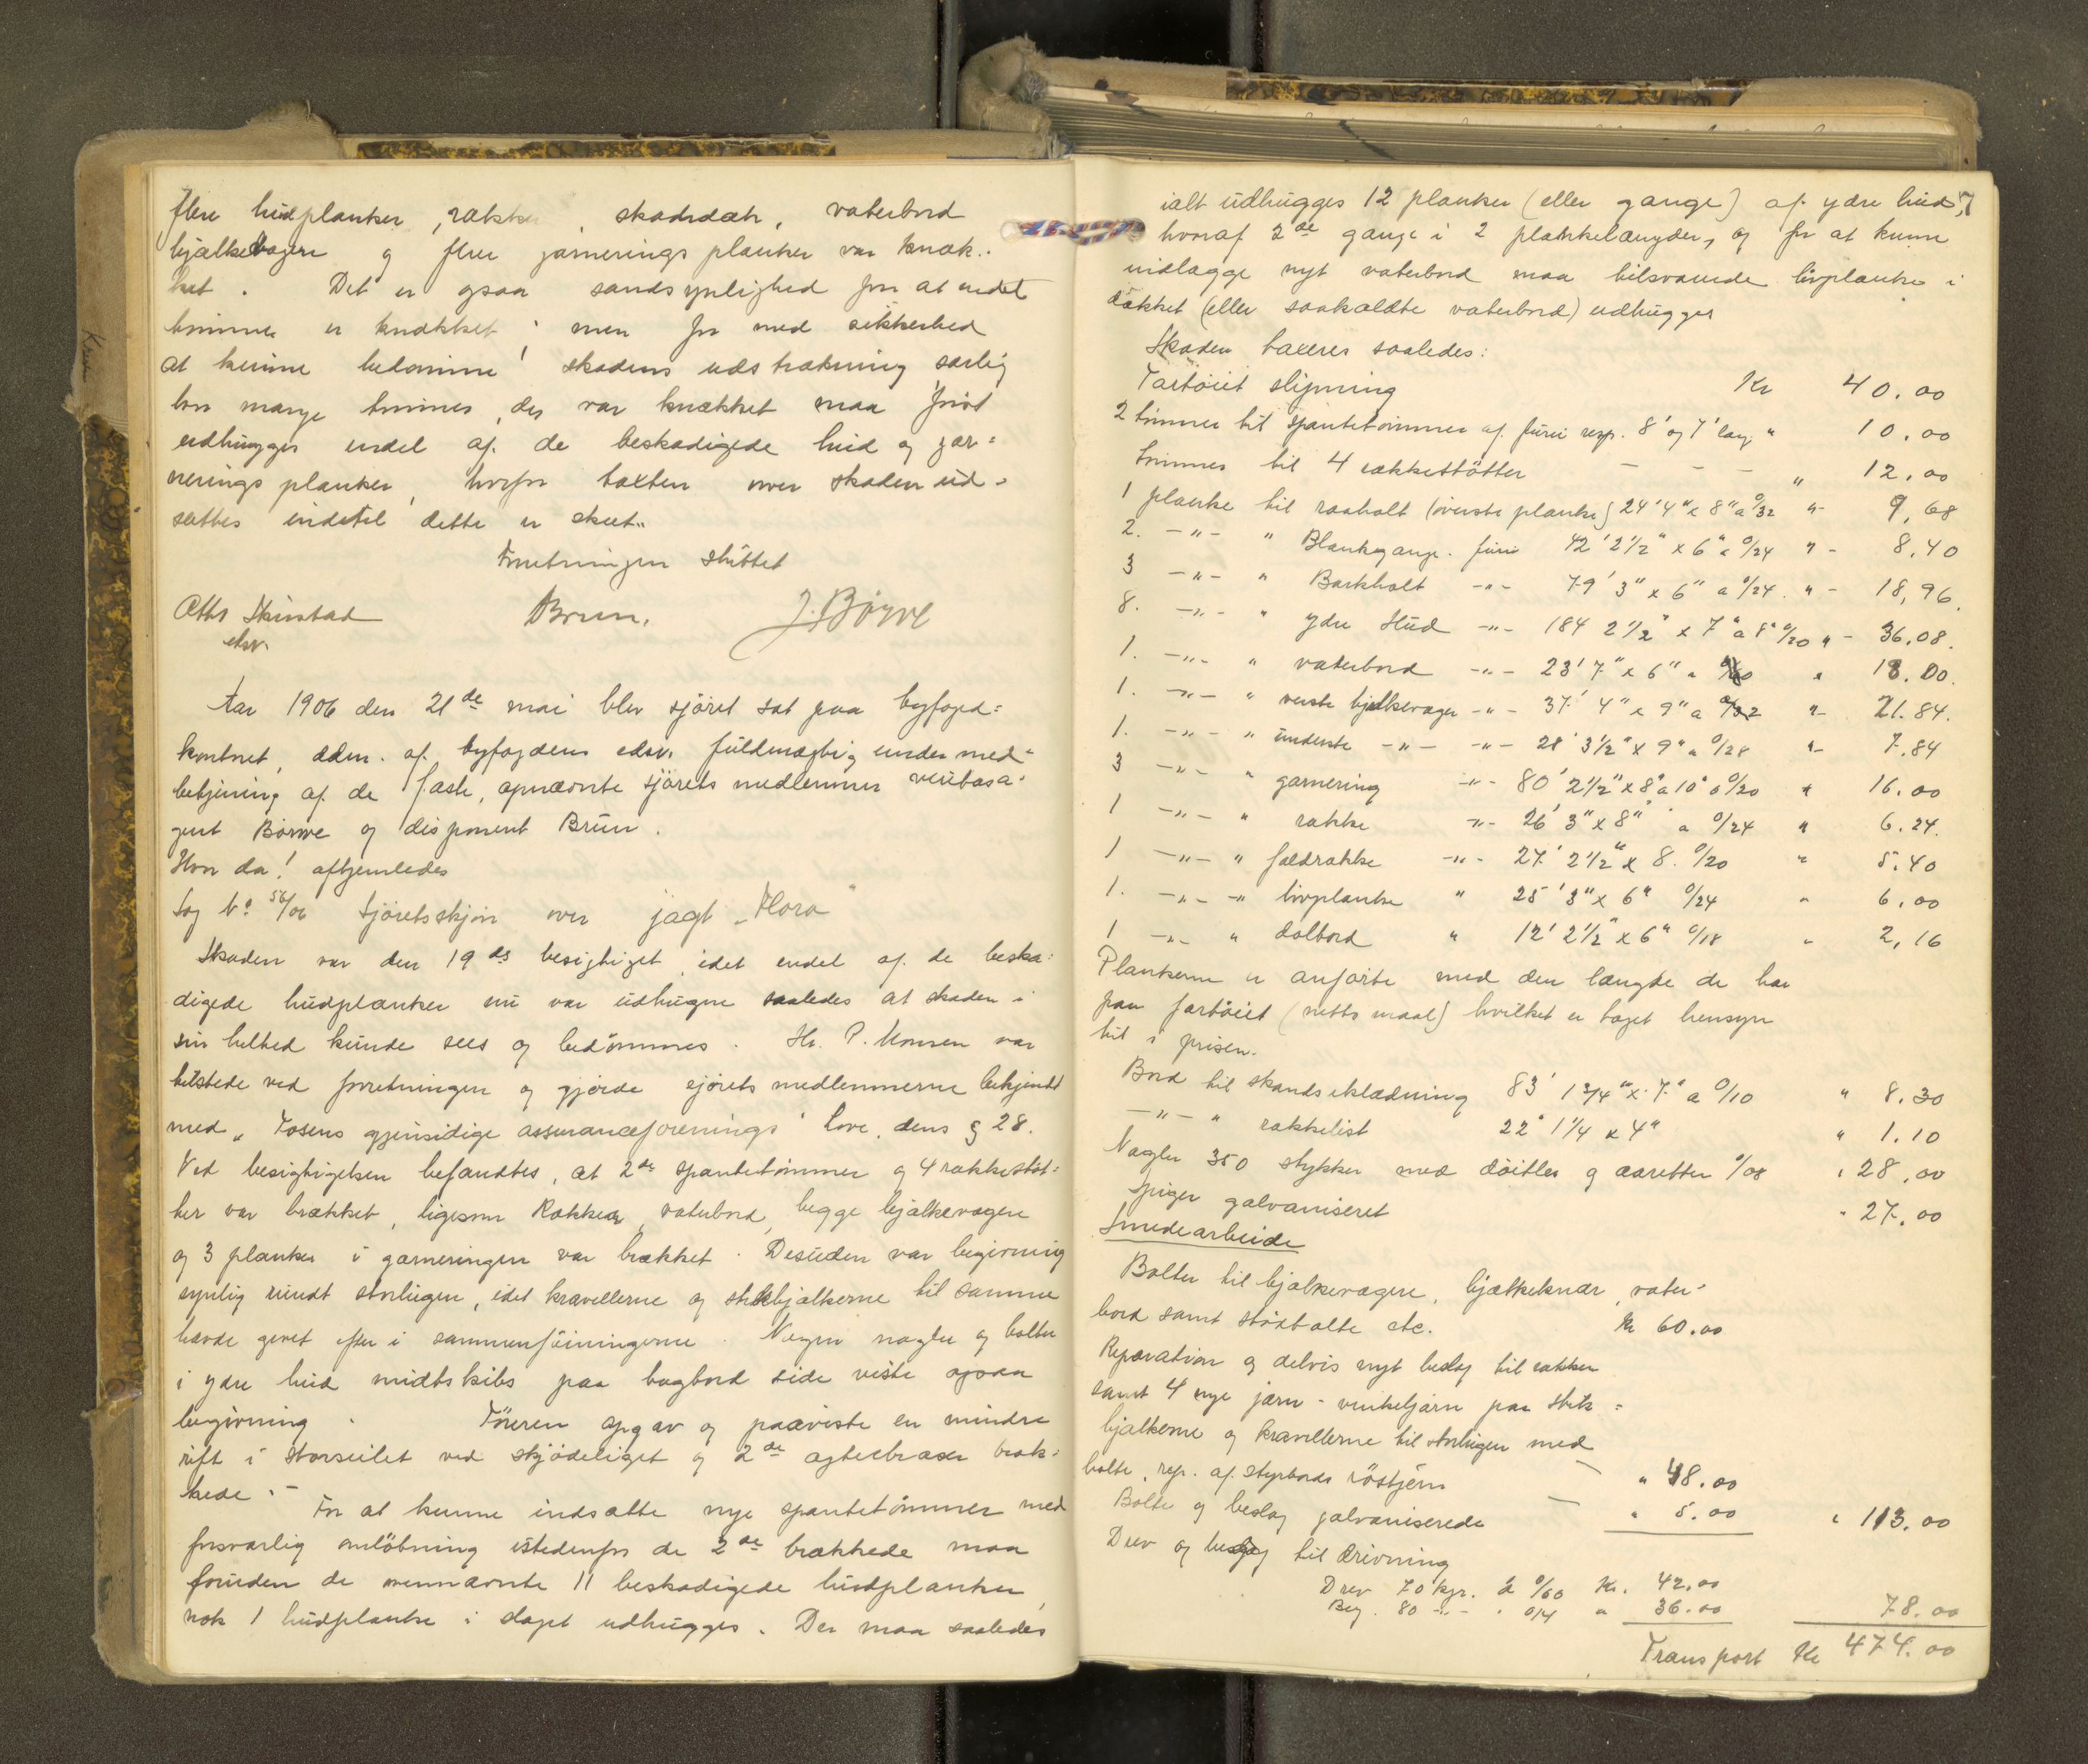 flere hudplanker, rækker, skandæk, vaterbord
bjælkevagere og flere garneringsplanker var knæk-
ket. Det er ogsaa sandsynlighed for at endel
tømmer er knækket; men for med sikkerhed
at kunne bedømme skadens udstrækning særlig
hvor mange tømmer, der var knækket maa først
udhugges endel af de beskadigede hud og gar=
nerings planker, hvorfor taxten over skaden ud=
sættes indtil dette er skeet.
Forretningen sluttet
Otto Skirstad
edsv.
Brun.
J. Børve
Aar 1906 den 21de mai blev sjøret sat paa byfoged=
kontoret, adm. af byfogdens edsv. fuldmægtig under med=
betjening af de faste, opnævnte sjørets medlemmer veibasa-
gent Børve og disponent Brun.
Hvor da! afhjemledes
Sag No 56/06 Sjøretsskjøn over jagt "Flora"
Skaden var den 19de besigtiget idet endel af de beska=
digede hudplanker nu var udhugne saaledes at skaden i
sin helhed kunde sees og bedømmes. Hr. P. Monsen var
tilstede ved forretningen og gjorde sjørets medlemmerne bekjendt
med "Fosens gjensidige assuranceforenings" love, dens § 28.
Ved besigtigelsen befandtes, at 2de spantetømmer og 4 rækkestøt=
ter var brækket, ligesom Rækker, vaterbord, begge bjælkevagere
og 3 planker i garneringen var brækket. Desuden var begivning
synlig rundt storlugen, idet kravellerne og stikbjælkerne til samme
havde givet efter i sammenføiningerne. Nogen nagler og bolter
i ydre hud midtskibs paa bagbord side viste ogsaa
begivning. Føreren opgav og paaviste en mindre
rift i storseilet ved skjødeliget og 2de agterbraser bræk=
kede. - For at kunne indsætte nye spantetømmer med
forsvarlig omløbning istedenfor de 2de brækkede maa
foruden de ovennævnte 11 beskadigede hudplanker,
nok 1 hudplanke i slaget udhugges. Der maa saaledes
ialt udhugges 12 planker (eller gange) af ydre hud, 7
hvoraf 2de gange i 2 plankelængder, og for at kunne
nidlægge nyt vaterbord maa tilsvarende livplanke i
dækket (eller saakaldte vaterbord) udhugges
Skaden taxeres saaledes:
Fartøiet slipning Kr 40.00
2 tømmer til spantetømmer af furu resp. 8' og 7' lang " 10.00
tømmer til 4 rækkestøtter - - - " 12.00
1 planke til raaholt (øverste planke) 24' 4" x 8" a 0/32 " - 9,68
2. -"- " Blankgange. furu 42' 2 1/2" x 6" a 0/24 " - 8.40
3 -"- " Barkholt -"- 79' 3" x 6" a 0/24. " - 18,96.
8. -"- " ydre Hud -"- 184 2 1/2" x 7" a 8" 0/20 " - 36.08.
1. -"- " vaterbord -"- 23' 7" x 6" a " 18.00.
1. -"- " øverste bjelkevager -"- 37' 4" x 9" a 0/32 " - 21.84.
1. -"- " underste -"- -"- 28' 3 1/2" x 9" a 0/28 " - 7.84
3 -"- " garnering -"- 80' 2 1/2" x 8" a 10" a 0/20 " 16.00
1 -"- " række -"- 26' 3" x 8" a 0/24 " 6.24.
1 -"- " faldrække -"- 27' 2 1/2" x 8. 0/20 " 5.40
1. -"- -"- livplanke " 25' 3" x 6" 0/24 " 6.00
1 -"- " dolbord " 12' 2 1/2" x 6" 0/18 " 2,16
Plankerne er anførte med den længde de har
paa fartøiet (netto maal) hvilket er taget hensyn
til i prisen.
Bord til skandseklædning 83' 1 3/4" x 7" a 0/10 " 8.30
-"- " rækkelist 22" 1 1/4 x 4" " 1.10
Nagler 350 stykker med døitler og aaretter 0/08 " 28.00
Spiger galvaniseret " 27.00
Smedearbeide
Bolter til bjælkevagere, bjælkeknær, vater-
bord samt stødbolte etc. Kr 60.00
Reparation og delvis nyt beslag til rækker
samt 4 nye jærn-vinkeljærn paa stik=
bjælkerne og kravellerne til storlugen med
bolte, rep. af styrbords røstjern - " 48.00
Bolte og beslag galvaniserede - " 5.00 " 113.00
Drev og beg til drivning
Drev 70 kgr. á 0/60 Kr. 42.00
Beg. 80 -"- " 0/14 " 36.00 78.00
Transport Kr 474.00